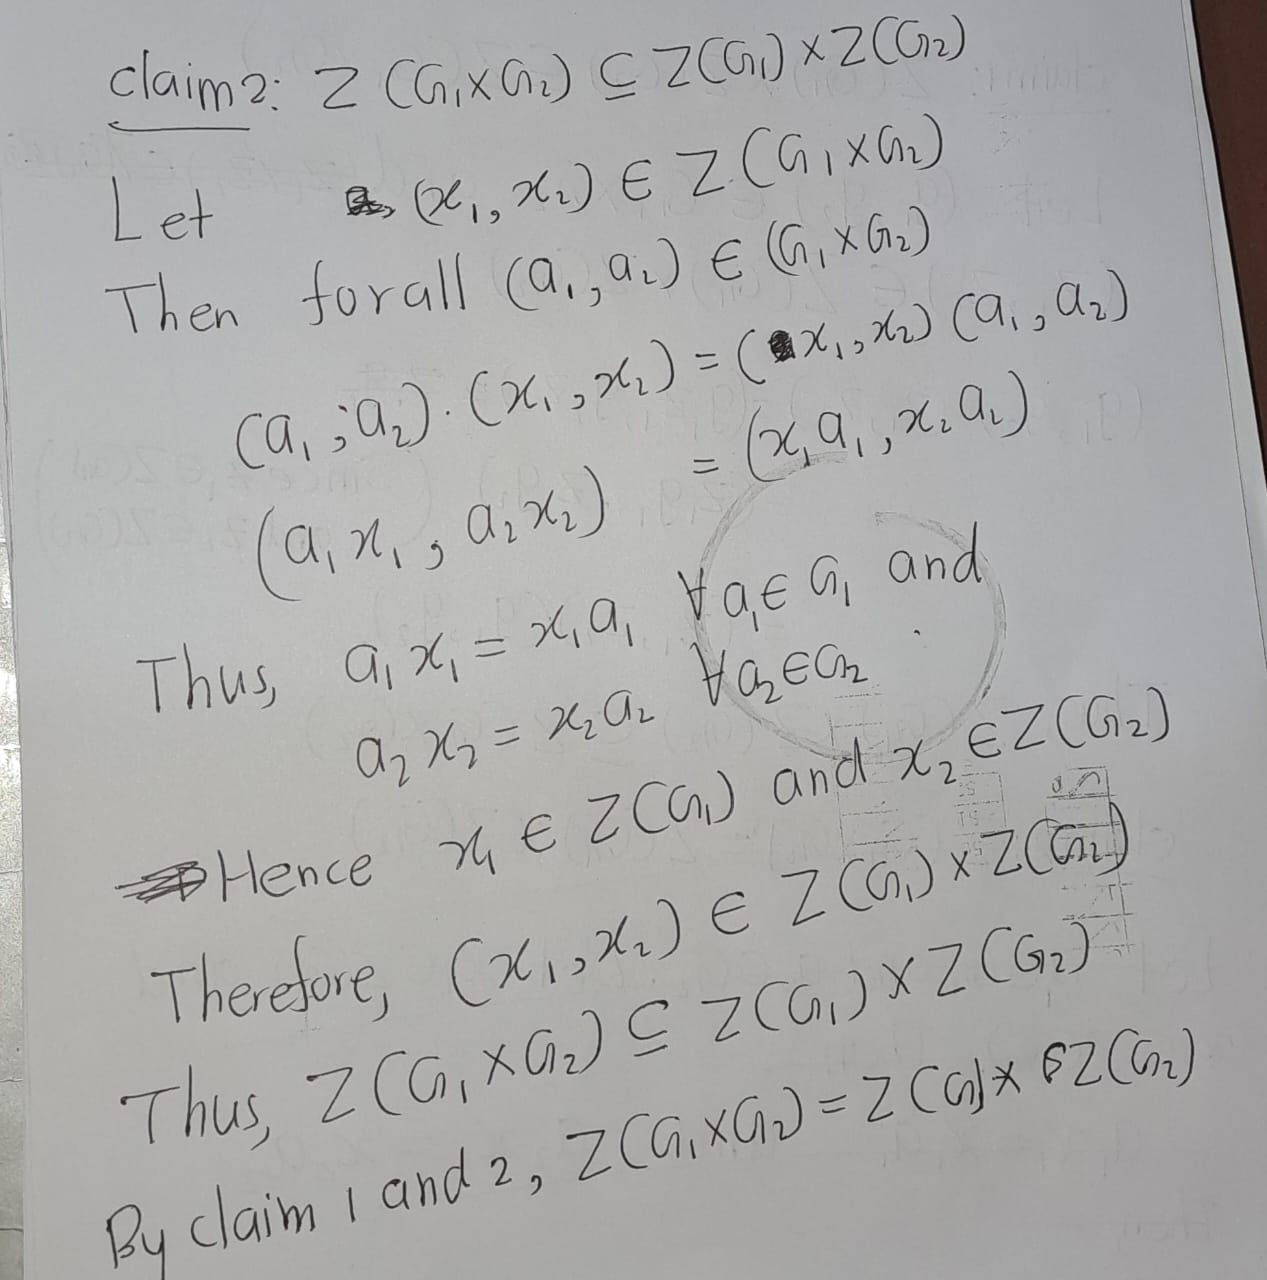 Claim 2: Z(G₁×G₂) ⊆ Z(G₁)×Z(G₂)
Let (x₁, x₂) ∈ Z(G₁×G₂)
Then for all (a₁, a₂) ∈ (G₁×G₂)
(a₁, a₂)·(x₁, x₂) = (x₁, x₂)(a₁, a₂)
(a₁x₁, a₂x₂) = (x₁a₁, x₂a₂)
Thus, a₁x₁ = x₁a₁ ∀a₁∈G₁ and
a₂x₂ = x₂a₂ ∀a₂∈G₂
Hence x₁ ∈ Z(G₁) and x₂ ∈ Z(G₂)
Therefore, (x₁, x₂) ∈ Z(G₁)×Z(G₂)
Thus, Z(G₁×G₂) ⊆ Z(G₁)×Z(G₂)
By claim 1 and 2, Z(G₁×G₂) = Z(G₁)×Z(G₂)